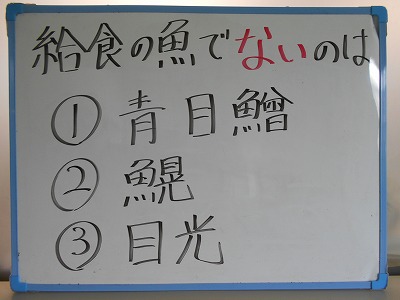 給食の魚でないのは
① 青目鱠
② 鰉
③ 目光